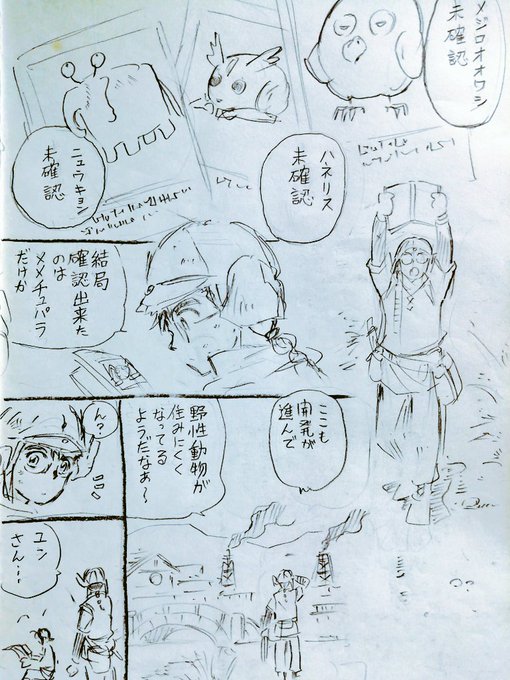 メジロオオワシ
未確認
ハネリス
未確認
ニュラキョン
未確認
結局
確認出来た
のは
メメチュパラ
だけか
ここも
開発が
進んで
野性動物が
住みにくく
なってる
ようだなぁ〜
ん?
ユン
さん…